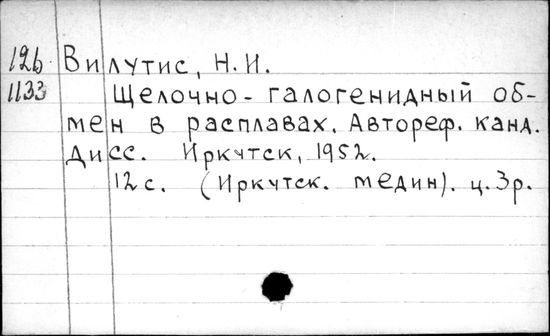 126 Вилутис, Н.И.
1133 Щелочно-галогенидный об-
мен в расплавах. Автореф. канд.
дисс. Иркутск, 1952.
12 с. (Иркутск. медин). ц. 3р.